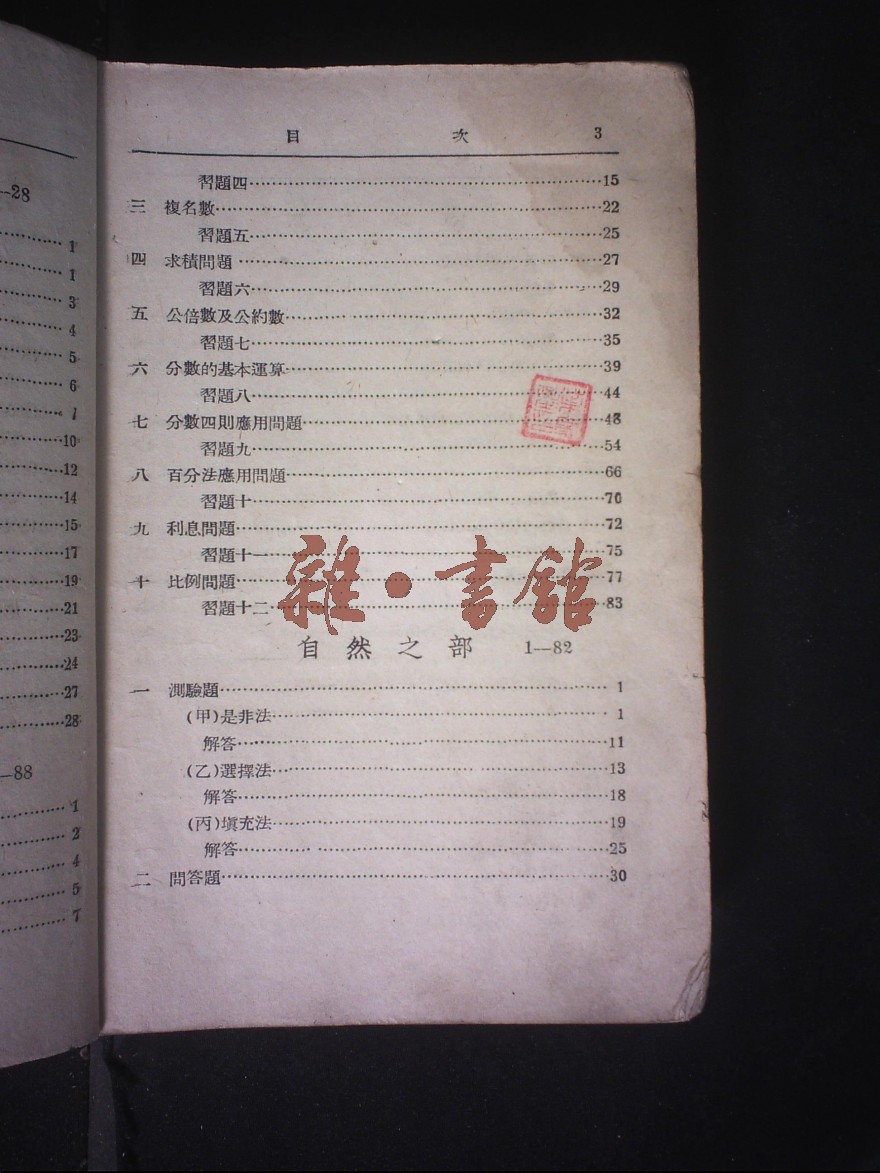 —28
1
1
3
4
5
6
10
12
14
15
17
19
21
23
24
27
28
—88
1
2
4
5
7
目 次 3
習題四……15
三 複名數……22
習題五……25
四 求積問題……27
習題六……29
五 公倍數及公約數……32
習題七……35
六 分數的基本運算……39
習題八……44
七 分數四則應用問題……48
習題九……54
八 百分法應用問題……66
習題十……70
九 利息問題……72
習題十一……75
十 比例問題……77
習題十二……83
雜·書館
自然之部 1—82
一 測驗題……1
(甲)是非法……1
解答……11
(乙)選擇法……13
解答……18
(丙)塡充法……19
解答……25
二 問答題……30